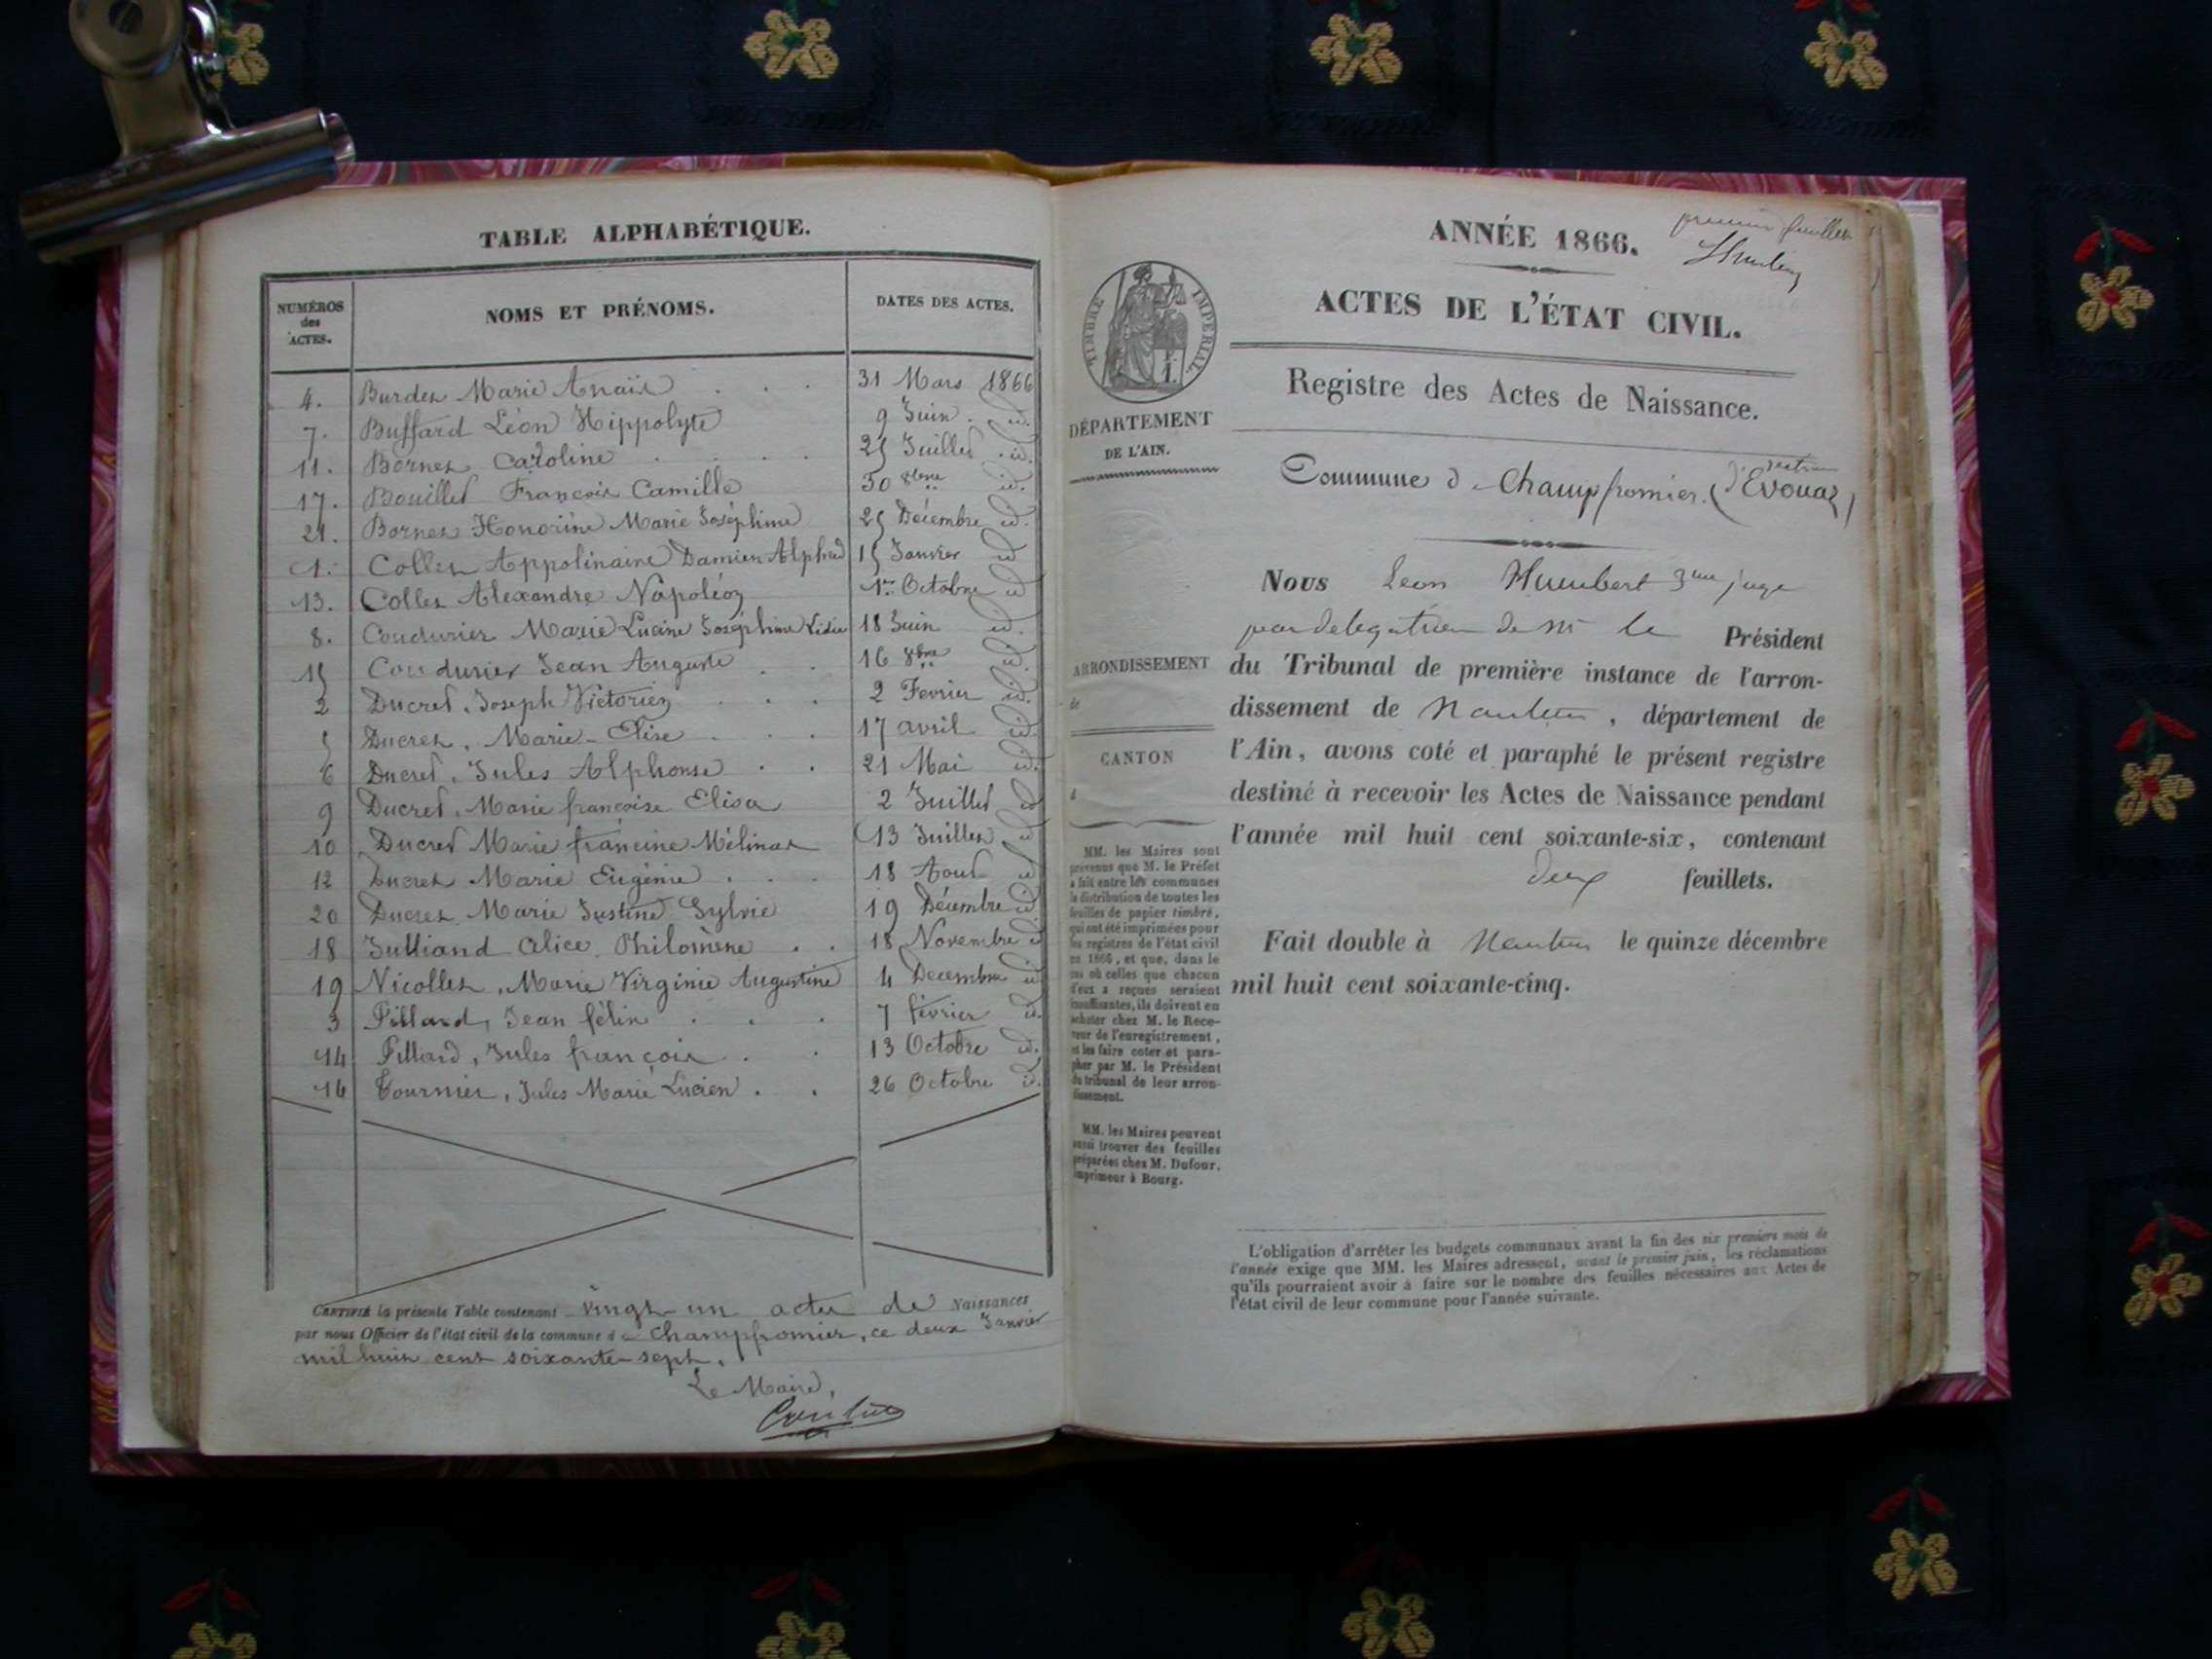 TABLE ALPHABÉTIQUE.
NUMÉROS des ACTES. NOMS ET PRÉNOMS. DATES DES ACTES.
4. Burdet Marie Anaïs . . . 31 Mars 1866
7. Buffard Léon Hippolyte 9 Juin . id.
11. Bornet Caroline . . . . 25 Juillet . id.
17. Bouillet François Camille 30 8bre id.
21. Bornet Honorine Marie Joséphine 25 Décembre id.
1. Collet Appolinaire Damien Alphred 15 Janvier id
13. Collet Alexandre Napoléon 1er Octobre id
8. Coudurier Marie Lucine Joséphine Lidie 18 Juin id.
15 Coudurier Jean Auguste . . 16 8bre id.
2 Ducret, Joseph Victorien . . . 2 Fevrier id.
5 Ducret, Marie-Elise . . . 17 avril id.
6 Ducret, Jules Alphonse . . 21 Mai id.
9 Ducret, Marie françoise Elisa 2 Juillet id
10 Ducret Marie francine Mélina 13 Juillet id
12 Ducret Marie Eugénie . . . 18 Aout id
20 Ducret Marie Justine Sylvie 19 Décembre id
18 Julliand Alice Philomène . . 18 Novembre id
19 Nicollet, Marie Virginie Augustine 4 Decembre id
3 Pillard, Jean félix . . . 7 février id.
14 Pillard, Jules françois . . 13 Octobre id.
16 Tournier, Jules Marie Lucien . . 26 Octobre id.
CERTIFIÉ la présente Table contenant vingt-un actes de Naissances
par nous Officier de l'état civil de la commune de Champfromier, ce deux Janvier
mil huit cent soixante-sept.
Le Maire,
ANNÉE 1866.
premier feuillet
ACTES DE L'ÉTAT CIVIL.
TIMBRE IMPÉRIAL
Registre des Actes de Naissance.
DÉPARTEMENT
DE L'AIN.
Commune de Champfromier (section d'Evouaz)
Nous Leon Humbert 3me juge
par delegation de Mr le Président
ARRONDISSEMENT
de
du Tribunal de première instance de l'arron-
dissement de Nantua, département de
CANTON
d
l'Ain, avons coté et paraphé le présent registre
destiné à recevoir les Actes de Naissance pendant
l'année mil huit cent soixante-six, contenant
deux feuillets.
Fait double à Nantua le quinze décembre
mil huit cent soixante-cinq.
MM. les Maires sont
prévenus que M. le Préfet
a fait entre les communes
la distribution de toutes les
feuilles de papier timbré,
qui ont été imprimées pour
les registres de l'état civil
en 1866, et que, dans le
cas où celles que chacun
d'eux a reçues seraient
insuffisantes, ils doivent en
acheter chez M. le Rece-
veur de l'enregistrement,
et les faire coter et para-
pher par M. le Président
du tribunal de leur arron-
dissement.
MM. les Maires peuvent
aussi trouver des feuilles
préparées chez M. Dufour,
imprimeur à Bourg.
L'obligation d'arrêter les budgets communaux avant la fin des six premiers mois de
l'année exige que MM. les Maires adressent, avant le premier juin, les réclamations
qu'ils pourraient avoir à faire sur le nombre des feuilles nécessaires aux Actes de
l'état civil de leur commune pour l'année suivante.